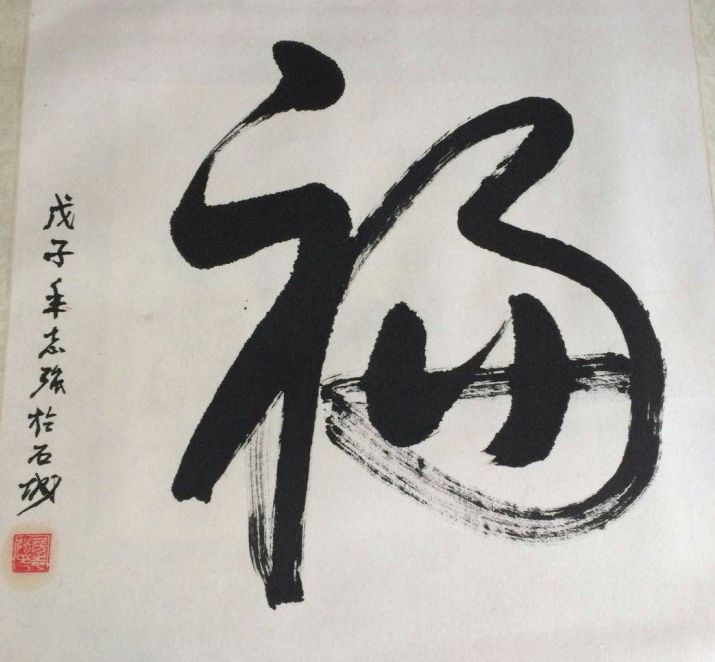 福
戊子年志强於石城